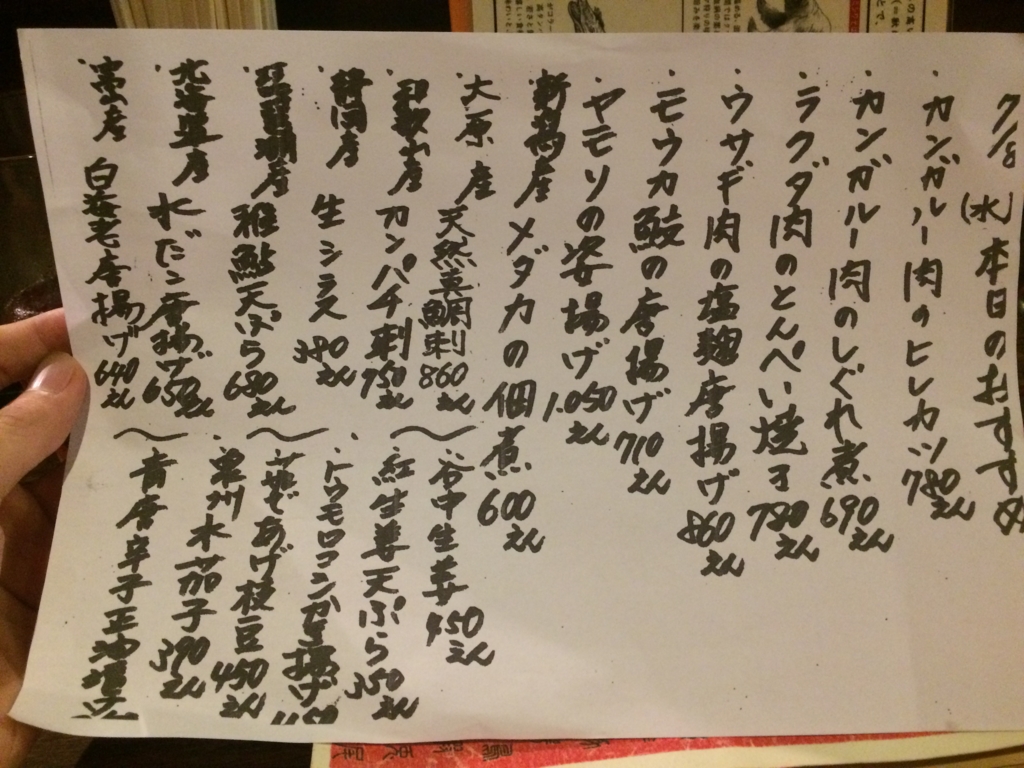 7/8 (水) 本日のおすすめ
・カンガルー肉のヒレカツ 780えん
・カンガルー肉のしぐれ煮 690えん
・ラクダ肉のとんぺい焼き 780えん
・ウサギ肉の塩麹唐揚げ 860えん
・モウカ鮫の唐揚げ 710えん
・ヤモリの姿揚げ 1.050えん
・新潟産 メダカの佃煮 600えん
・大原産 天然真鯛刺 860えん
・和歌山産 カンパチ刺 750えん
・静岡産 生シラス 390えん
・琵琶湖産 稚鮎天ぷら 680えん
・北海道産 水だこ唐揚げ 650えん
・富山産 白海老唐揚げ 640えん
〜谷中生姜 450えん
・紅生姜天ぷら 350えん
・トウモロコシかき揚げ
〜茹であげ枝豆 450えん
・泉州水茄子 390えん
〜青唐辛子正油漬け